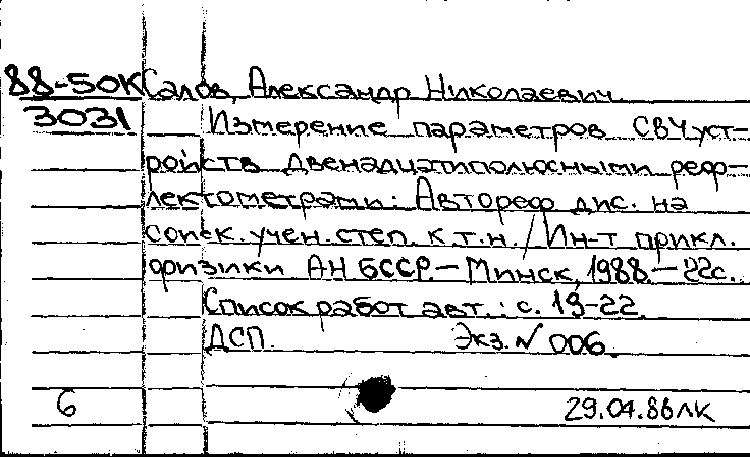 88-50К Салов, Александр Николаевич.
3031 Измерение параметров СВЧ уст-
ройств двенадцатиполюсными реф-
лектометрами: Автореф дис. на
соиск. учен. степ. к.т.н. / Ин-т прикл.
физики АН БССР. — Минск, 1988. — 22с.
Список работ авт.: с. 19-22.
ДСП. Экз. № 006.
6 29.04.88 ЛК